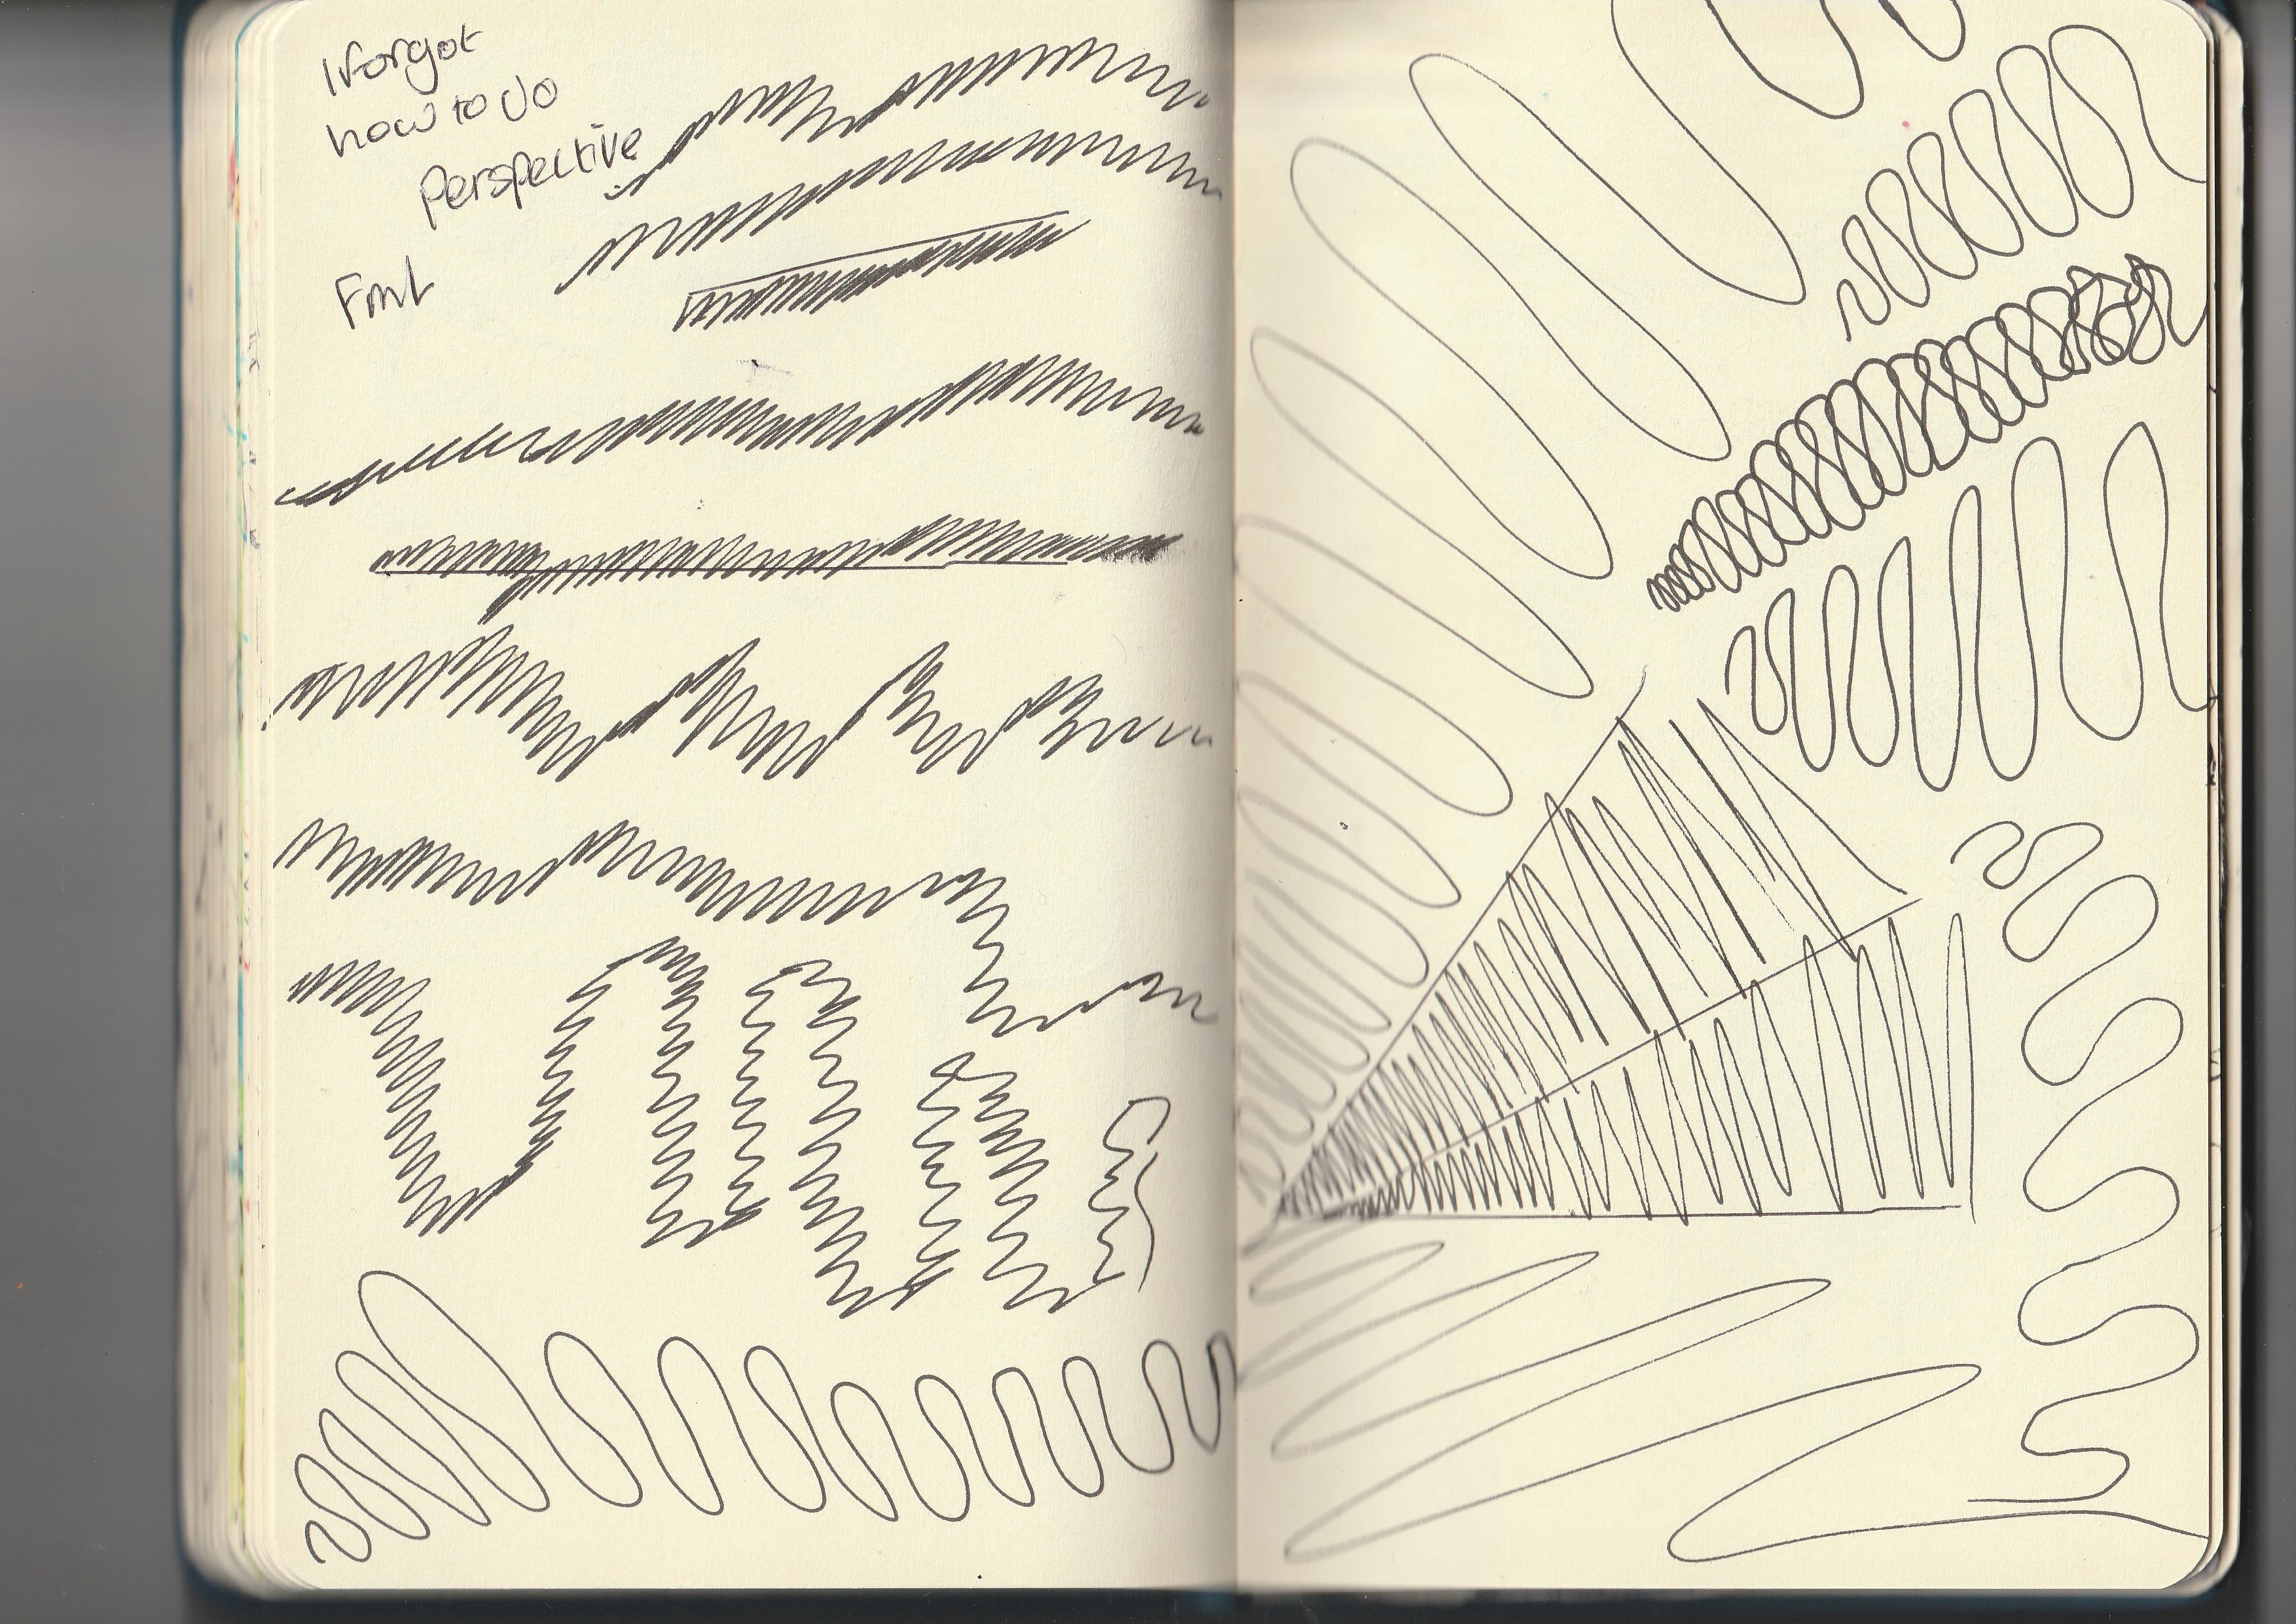 I forgot
how to do
Perspective
FmL